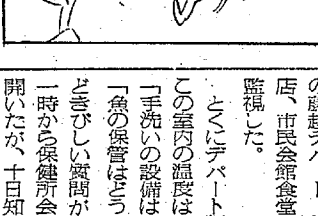 の藤越デパート
店、市民会館食堂
監視した。
とくにデパート
この室内の温度は
「手洗いの設備は
「魚の保管はどう
どきびしい質問が
一時から保健所会
開いたが、十日知